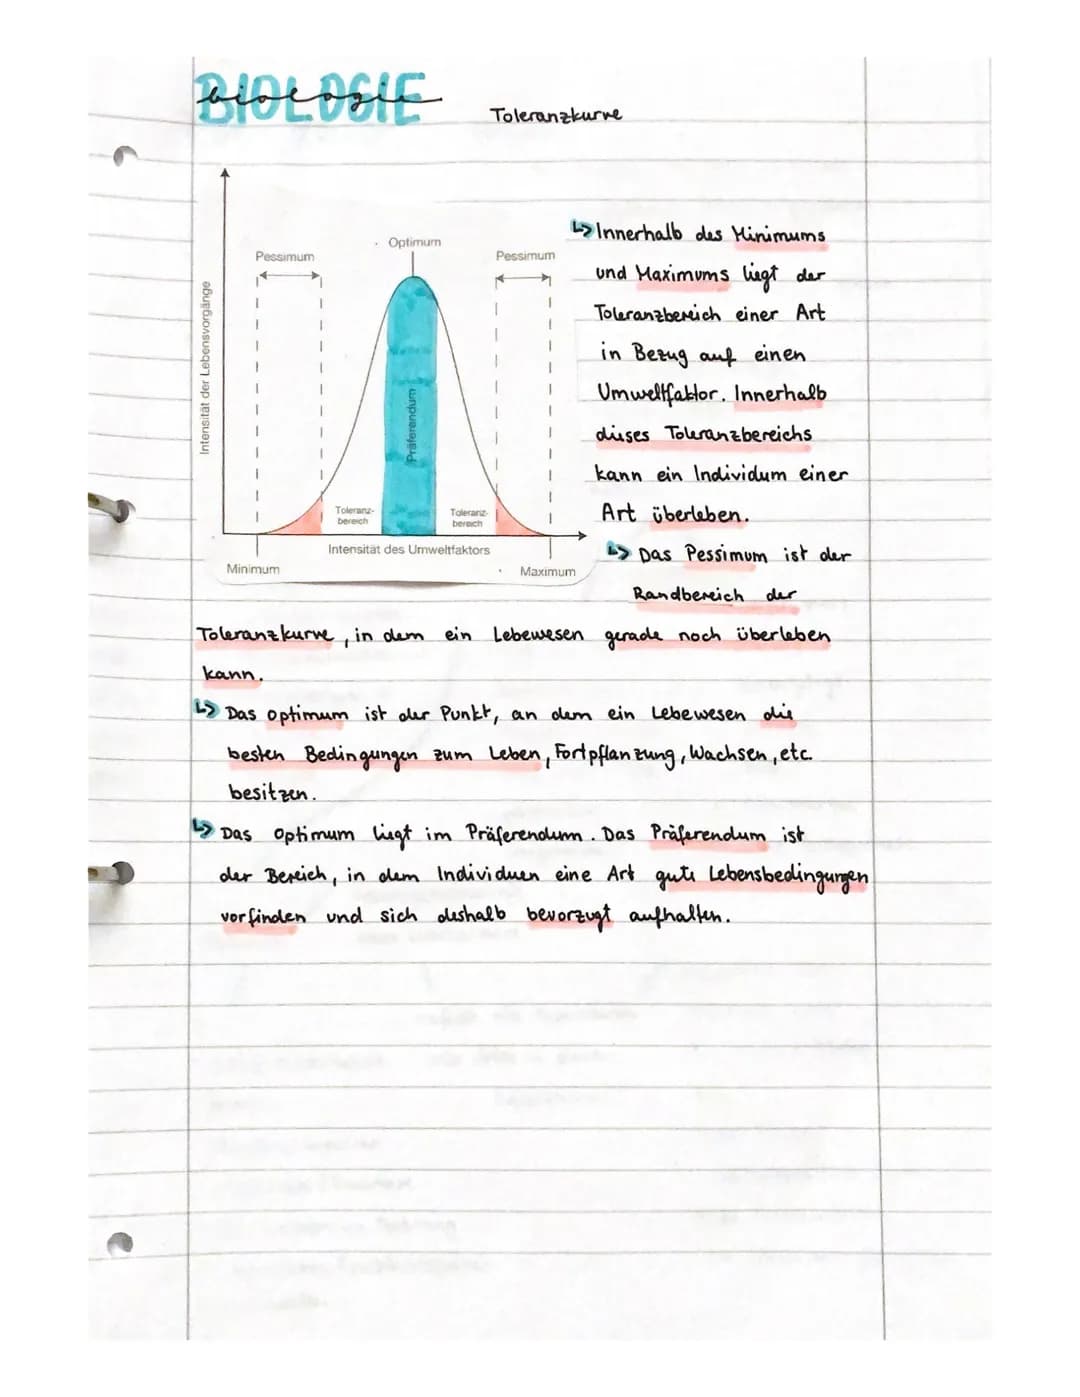 BIOLOGIE
biologie
Toleranzkurve
Optimum
Pessimum
Pessimum
Intensität der Lebensvorgänge
Präferendum
Toleranz-
bereich
Toleranz-
bereich
Intensität des Umweltfaktors
Minimum
Maximum
↳ Innerhalb des Minimums
und Maximums liegt der
Toleranzbereich einer Art
in Bezug auf einen
Umweltfaktor. Innerhalb
dieses Toleranzbereichs
kann ein Individum einer
Art überleben.
↳ Das Pessimum ist der
Randbereich der
Toleranzkurve, in dem ein Lebewesen gerade noch überleben
kann.
↳ Das optimum ist der Punkt, an dem ein Lebewesen die
besten Bedingungen zum Leben, Fortpflanzung, Wachsen, etc.
besitzen.
↳ Das Optimum liegt im Präferendum. Das Präferendum ist
der Bereich, in dem Individuen eine Art gute Lebensbedingungen
vorfinden und sich deshalb bevorzugt aufhalten.